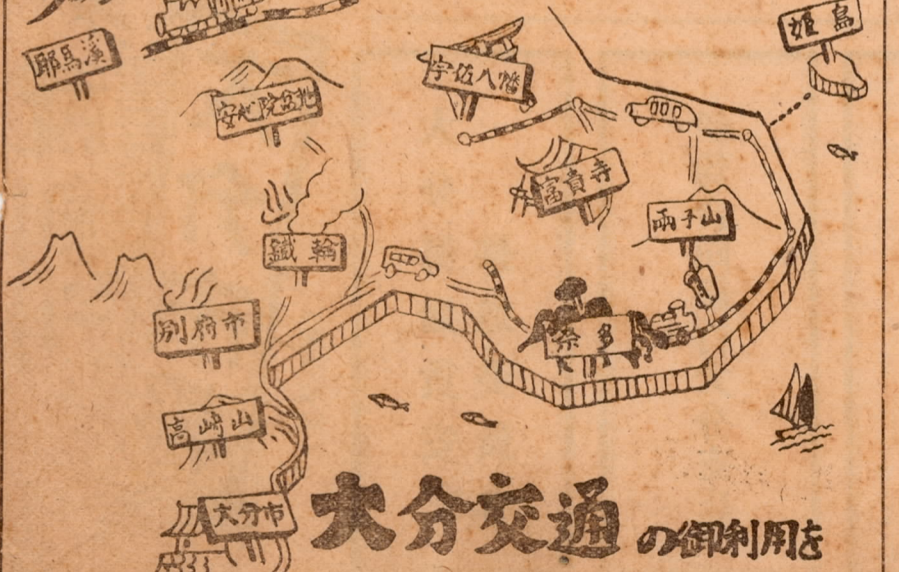 耶馬溪
安心院盆地
宇佐八幡
姫島
富貴寺
両子山
鐵輪
別府市
奈多
高崎山
大分市
大分交通の御利用を